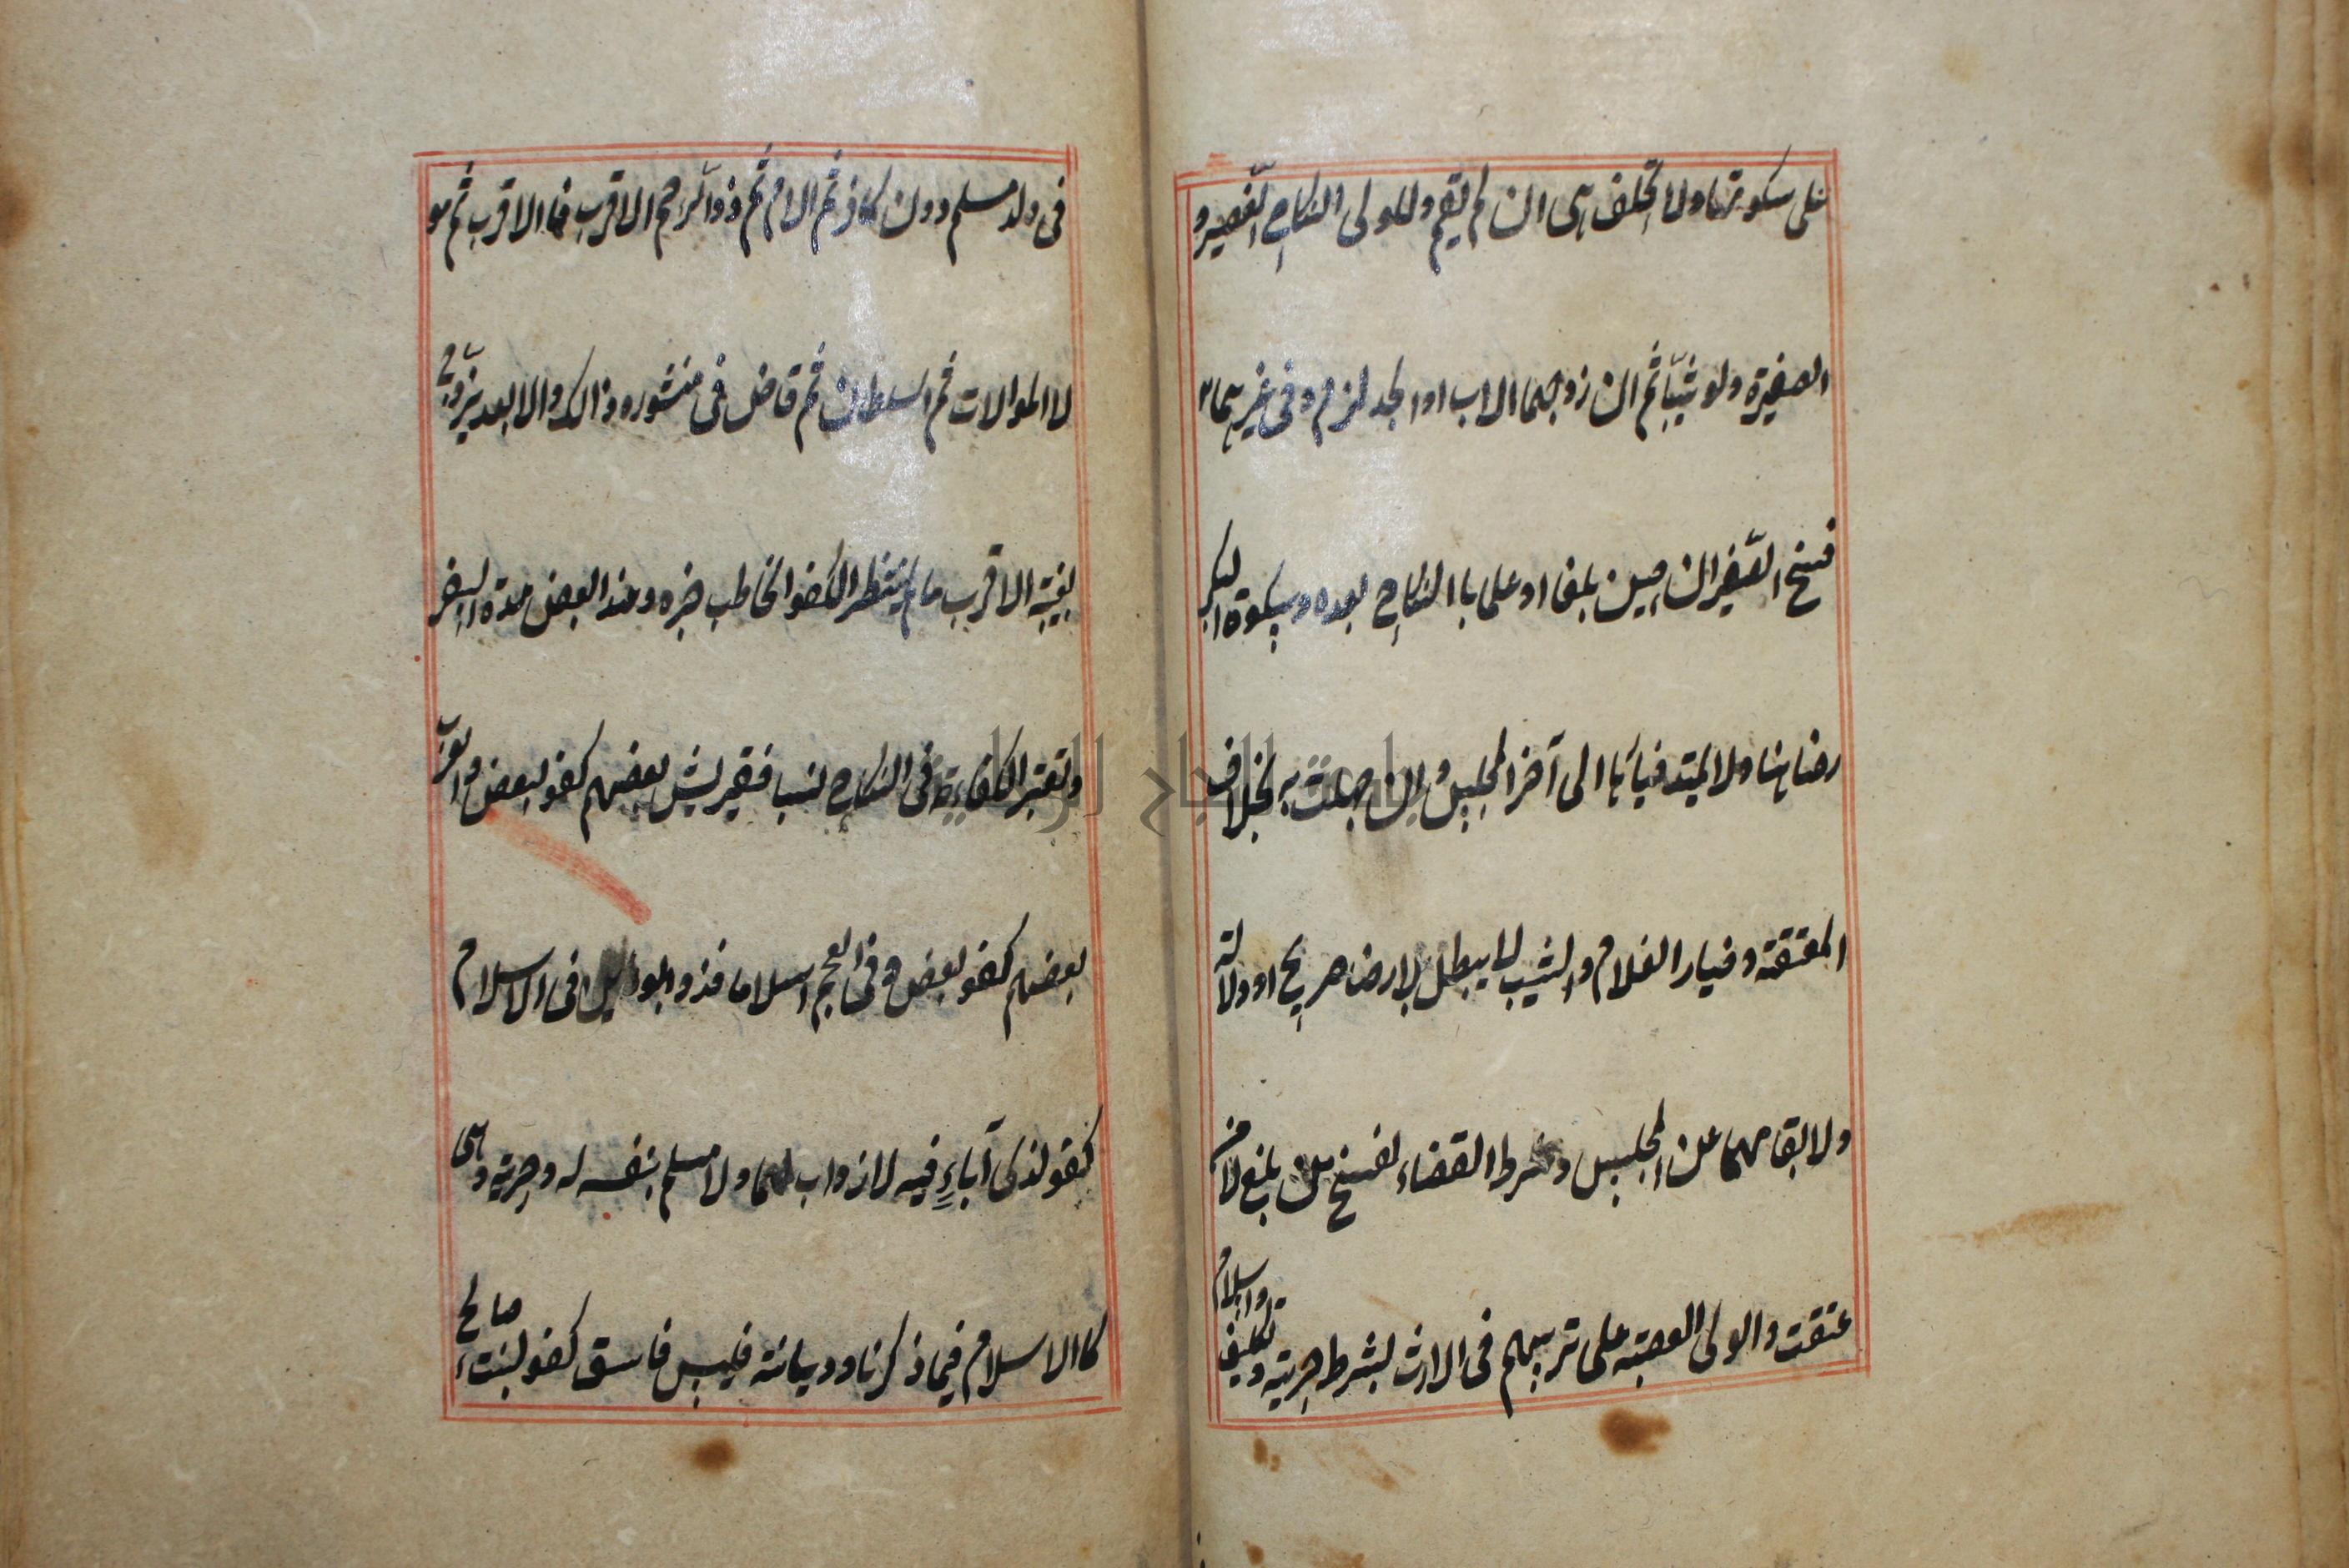 على سكوتها ولا تحلف هى ان لم يقم وللولى انكاح الصّغير و
الصغيرة ولو ثيّبا ثم ان زوجهما الاب او الجد لزم وفى غيرهما
فسخ الصّغيران حين بلغا او علما با النكاح بعده وسكوة البكر
رضا هنا ولا يمتد خيارها الى آخر المجلس وان جهلت به بخلاف
المعتقة وخيار الغلام والثيب لا يبطل بلا رضا صريح او دلالة
ولا بقيامهما عن المجلس وشرط القضاء لفسخ من بلغ لا من
عتقت والولى العصبة على ترتيبهم فى الارث بشرط حرية وتكليف واسلام
فى ولد مسلم دون كافر ثم الام ثم ذو الرّحم الاقرب فا الاقرب ثم مو
لا الموالات ثم السلطان ثم قاض فى منشوره ذالك والابعد يزوّج
بغيبة الاقرب ما لم ينتظر الكفو الخاطب خبره وعند البعض مدة السفر
وتعتبر الكفاءة فى النكاح نسبا فقريش بعضهم كفو لبعض والعرب
بعضهم كفو لبعض وفى العجم اسلاما فذو ابوين فى الاسلام
كفو لذى آباءٍ فيه لا ذو اب لهما ولا مسلم بنفسه له وحرية وهى
كا الاسلام فيما ذكرنا وديانة فليس فاسق كفو لبنت صالح